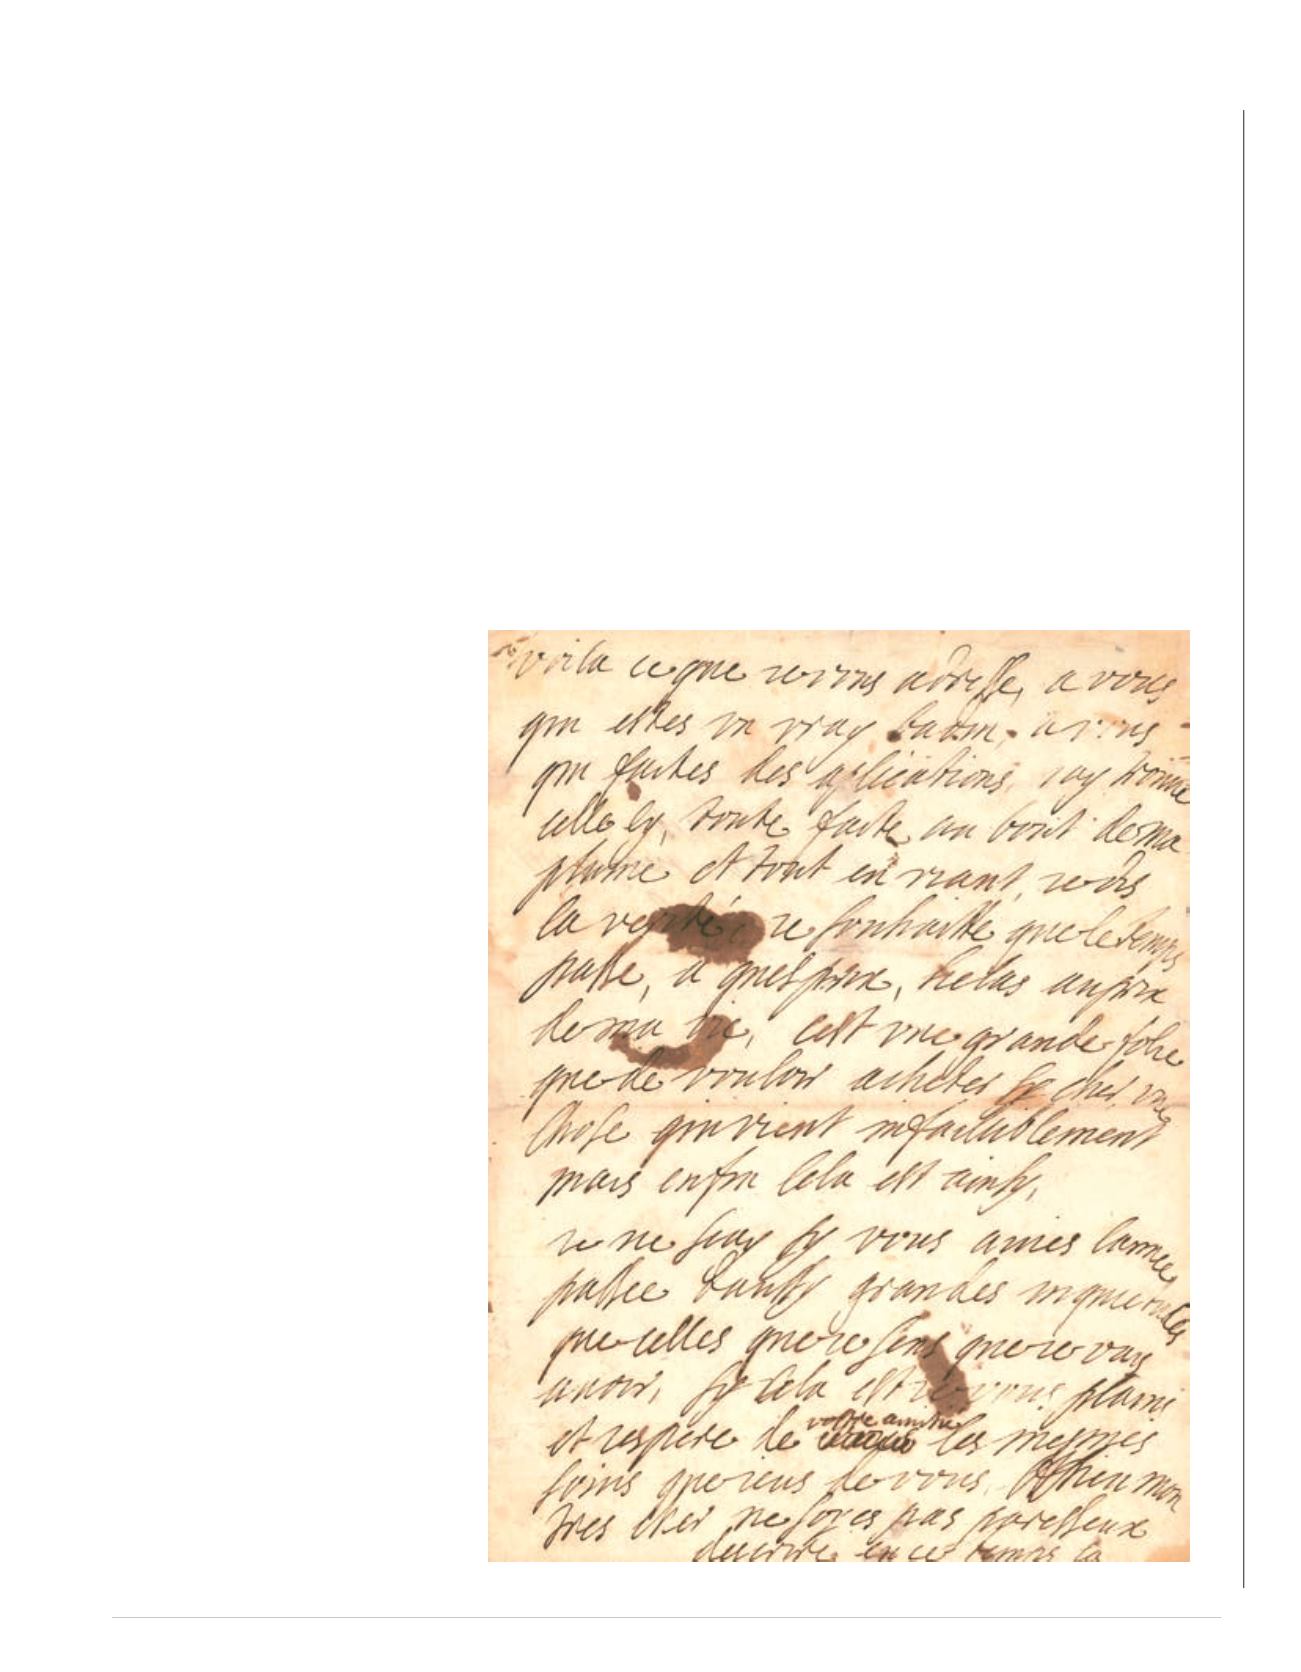 voila ce que je vous adresse, a vous
qui estes vn vray badin, a vous
qui faites des aplications, jay trouué
celle cy, toute faite au bout de ma
plume et tout en riant, je dis
la verité je souhaitte que le temps
passe, a quel prix, helas au prix
de ma vie, cest vne grande folie
que de vouloir acheter sy cher vne
chose qui vient infailliblement
mais enfin cela est ainsy,
je ne scay sy vous auies lannee
passee daussy grandes inquietudes
que celles que je sens que je vais
auoir, sy cela est je vous plains
et respere de vostre amitié les mesmes
soins que jeus de vous. mon
tres cher ne soyes pas paresseux
descrire en ce temps la